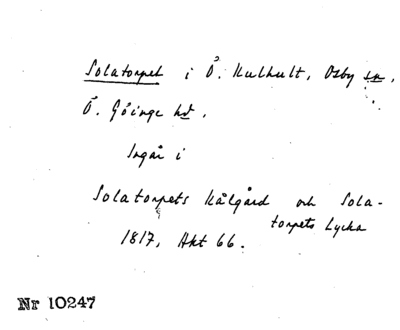 Solatorpet i Ö. Hulhult, Osby sn,
Ö. Göinge hd.
Ingår i
Solatorpets kålgård och Sola-
torpets Lycka
1817, Akt 66.
Nr 10247